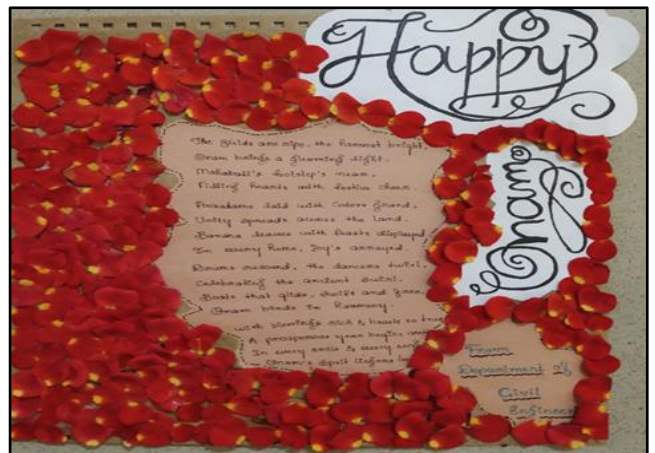 Happy
Onam
The fields are ripe, the harvest bright,
Onam brings a gleaming light.
Mahabali's footstep's near,
Filling hearts with festive cheer.
Pookalams laid with colors grand,
Unity spreads across the land.
Banana leaves with feasts displayed
In every home, Joy's arrayed.
Drums resound, the dancers twirl,
Celebrating the ancient swirl.
Boats that glide, swift and free,
Onam binds in Harmony.
With blessings rich & hearts so true
A prosperous year begins
In every smile & every song
Onam's spirit
From
Department of
Civil
Engineer